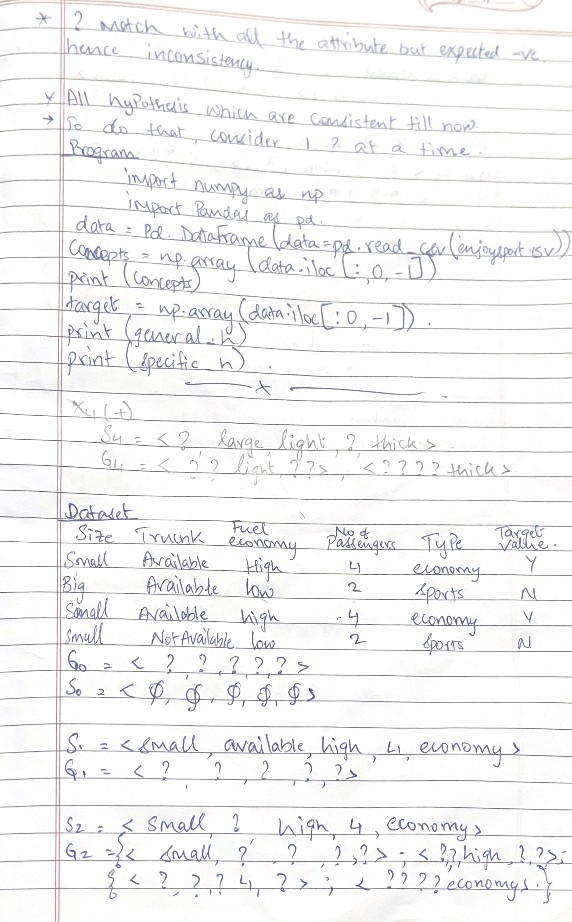 * ? match with all the attribute but expected -ve,
hence inconsistency.
* All hypothesis which are consistent till now.
→ To do that, consider 1 ? at a time.
Program
import numpy as np
import Pandas as pd.
data = Pd. DataFrame (data=pd.read_csv(enjoysport.csv))
Concepts = np.array (data.iloc[:,0,-1])
print (concepts)
target = np.array(data.iloc[:0,-1]).
print (general_h)
print (specific_h).
x
X4 (+)
S4 = < ?, large, light, ?, thick>.
G4 = < ? ? light, ? ?>, <? ? ? ? thick>
Dataset
Size Truunk Fuel economy No of Passengers Type Target Value.
Small Available High 4 economy Y
Big Available low 2 sports N
Small Available high 4 economy Y
Small Not Available low 2 sports N
G0 = < ?, ?, ?, ?, ? >
S0 = < ϕ, ϕ, ϕ, ϕ, ϕ>
S1 = <small, available, high, 4, economy>
G1 = < ?, ?, ?, ?, ?>
S2 = < small, ? high, 4, economy>
G2 = {< small, ?, ?, ?, ?> ; < ?, ?, high, ?, ?>;
{ < ?, ?, ? 4, ? > ; < ? ? ? ? economy>.}